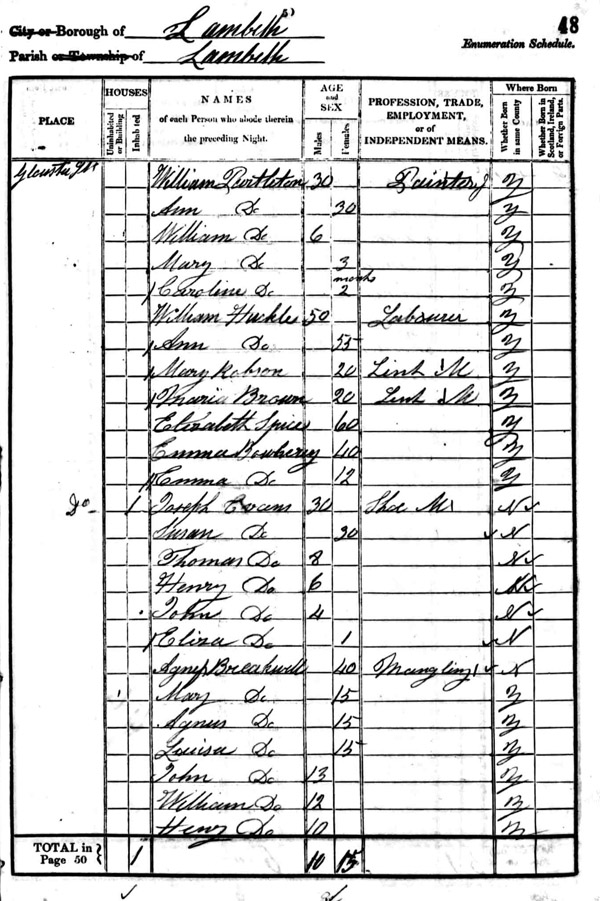 5)
City or Borough of Lambeth
48
Parish or Township of Lambeth
Enumeration Schedule.
PLACE
HOUSES
Uninhabited or Building
Inhabited
NAMES
of each Person who abode therein
the preceding Night.
AGE
and
SEX
Males
Females
PROFESSION, TRADE,
EMPLOYMENT,
or of
INDEPENDENT MEANS.
Where Born
Whether Born in same County
Whether Born in Scotland, Ireland, or Foreign Parts.
William 30 Painter J Y
Ann Do 30 Y
William Do 6 Y
Mary Do 3 Y
Caroline Do months 2 Y
William Huckle 50 Labourer Y
Ann Do 55 Y
Mary Robson 20 M Y
Maria Brown 20 M Y
Elizabeth Spice 60 Y
Emma 40 Y
Emma Do 12 Y
Do 1 Joseph Evans 30 Shoe M N
Susan Do 30 N
Thomas Do 8 N
Henry Do 6
John Do 4 N
Eliza Do 1 N
Agness Breakwell 40 Mangling N
Mary Do 15 Y
Agnus Do 15 Y
Louisa Do 15 Y
John Do 13 Y
William Do 12 Y
Henry Do 10 Y
TOTAL in
Page 50 1 10 15